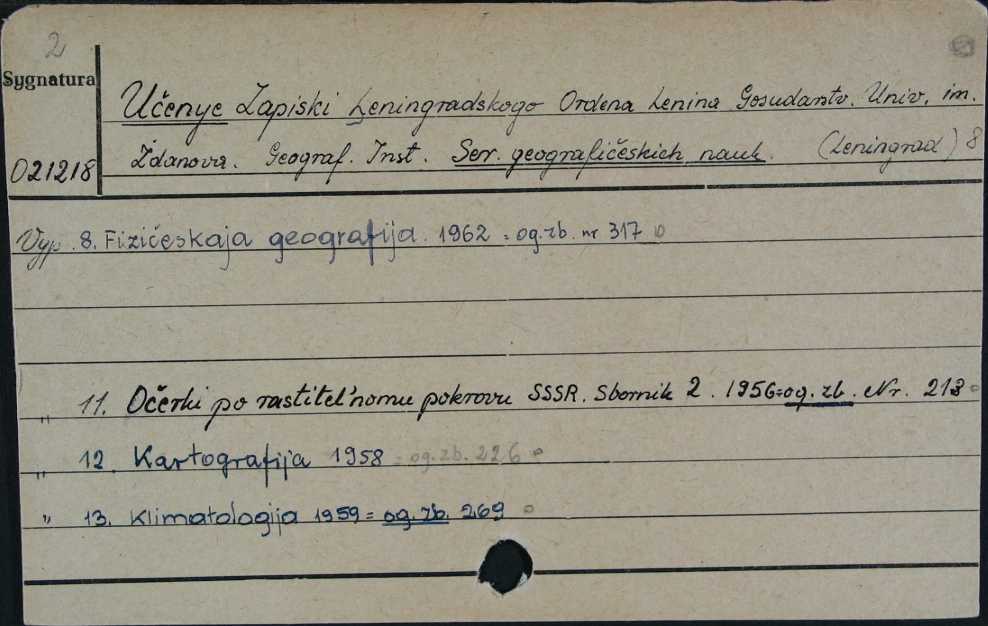 2
Sygnatura
Učenye Zapiski Leningradskogo Ordena Lenina Gosudarstv. Univ. im.
Ždanova. Geograf. Inst. Ser. geografičeskich nauk. (Leningrad) 8
021218
Vyp. 8. Fizičeskaja geografija. 1962 = og. zb. nr 317
„ 11. Očerki po rastitel'nomu pokrovu SSSR. Sbornik 2. 1956 = og. zb. Nr. 213
„ 12. Kartografija 1958 = og. zb. 226
„ 13. Klimatologija 1959 = og. zb. 269